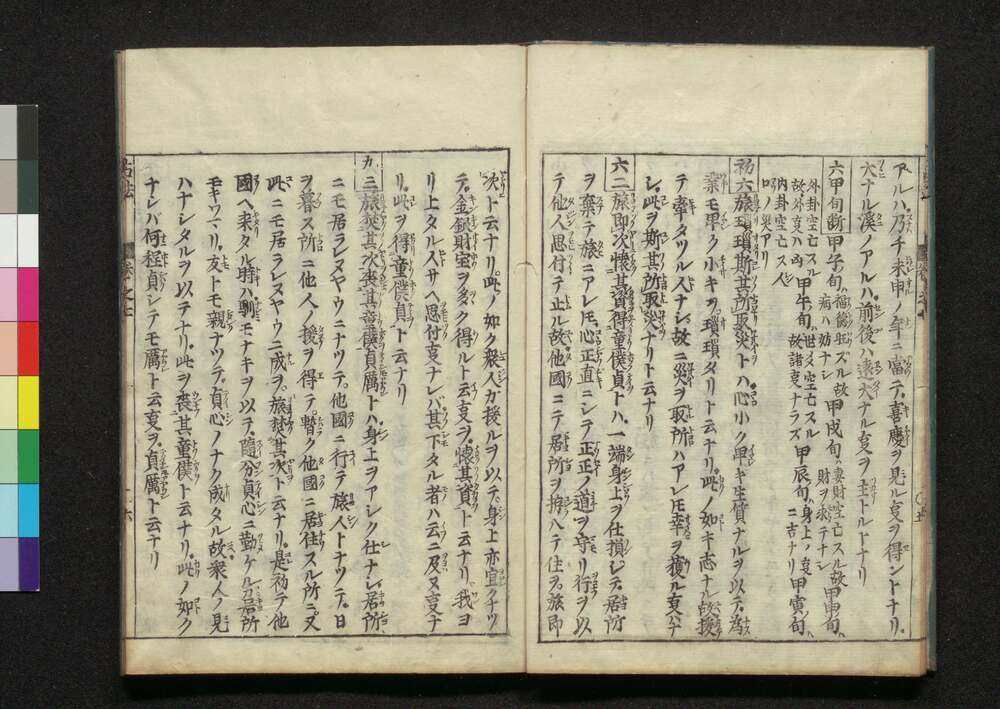 アルハ乃チ未申ノ年ニ當テ喜慶ヲ見ル亥ヲ得ントナリ。
大ナル溪ノアルハ前後ハ遠大ナル亥ヲ主トルトナリ
六甲旬断 甲子旬 福徳旺ズル故 病ハ妨ナシ 甲戌旬 妻財空亡スル故 財ヲ求テナシ 甲申旬ハ
外卦空亡スル故外亥ハ凶 甲午旬ハ 世爻空亡スル故諸亥ナラズ 甲辰旬ハ 身上ノ亥ニ吉ナリ 甲寅旬ハ
内卦空亡ス人口ノ災アリ
初六旅瑣瑣斯其所取災トハ心小ク卑キ生質ナルヲ以テ為
業モ卑ク小キヲ瑣瑣タリト云ナリ。此ノ如キ志ナル故援
テ牽タツル人ナシ。故ニ災ヲ取所ハアレ𪜈幸ヲ獲ル亥ハナ
シ。此ヲ斯其所取災ナリト云ナリ
六二旅即次懐其資得童僕貞トハ、一端身上ヲ仕損シテ居所
ヲ棄テ旅ニアレ𪜈心正直ニシテ正正ノ道ヲ守リ行ヲ以
テ他人思付テ止ル故他國ニテ居所ヲ拘ハテ住ヲ。旅即
次ト云ナリ。此ノ如ク衆人カ授ルヲ以テ身上亦宜クナツ
テ。金銀財宝ヲ多ク得ルト云亥ヲ。懐其資ト云ナリ。我ヨ
リ上タル人サヘ思付亥ナレバ其下タル者ハ云ニ及ヌ亥ナ
リ。此ヲ得童僕貞ト云ナリ
九三旅焚其次喪其童僕貞厲トハ身上ヲアシク仕ナシ居所
ニモ居ラレヌヤウニナツテ。他國ニ行テ旅人トナツテ。日
ヲ暮ス所ニ他人ノ援ヲ得テ暫ク他國ニ居住スル所ニ。又
此ニモ居ラレヌヤウニ成ヲ。旅焚其次ト云ナリ。是初テ他
國ヘ来タル時ハ馴モナキヲ以テ。隨分貞心ニ勤ケルガ居所
モキワマリ。友トモ親ナツテ。貞心ノナク成タル故衆人ノ見
ハナシタルヲ以テナリ。此ヲ喪其童僕ト云ナリ。此ノ如ク
ナレバ何程貞シテモ厲ト云亥ヲ。貞厲ト云ナリ